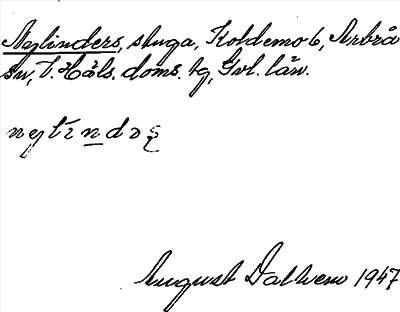 Nejlinders, stuga, Koldemo 6, Arbrå
sn, V. Häls. doms. tg, Gvl. län.
nejlindəʂ
August Dalhem 1947